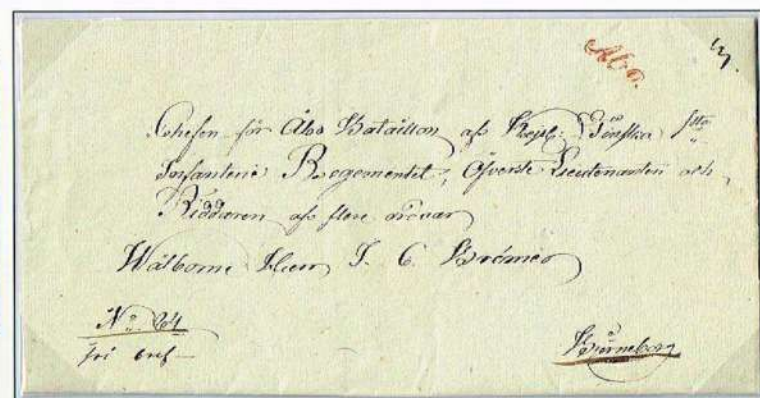 Åbo.
Chefen för Åbo Bataillon af Kejs: Finska
Infanterie Regementet, Öfverste Lieutenanten och
Riddaren af flere
Wälborne Herr J. C. Brömes
No 64
fri bref
Björneborg